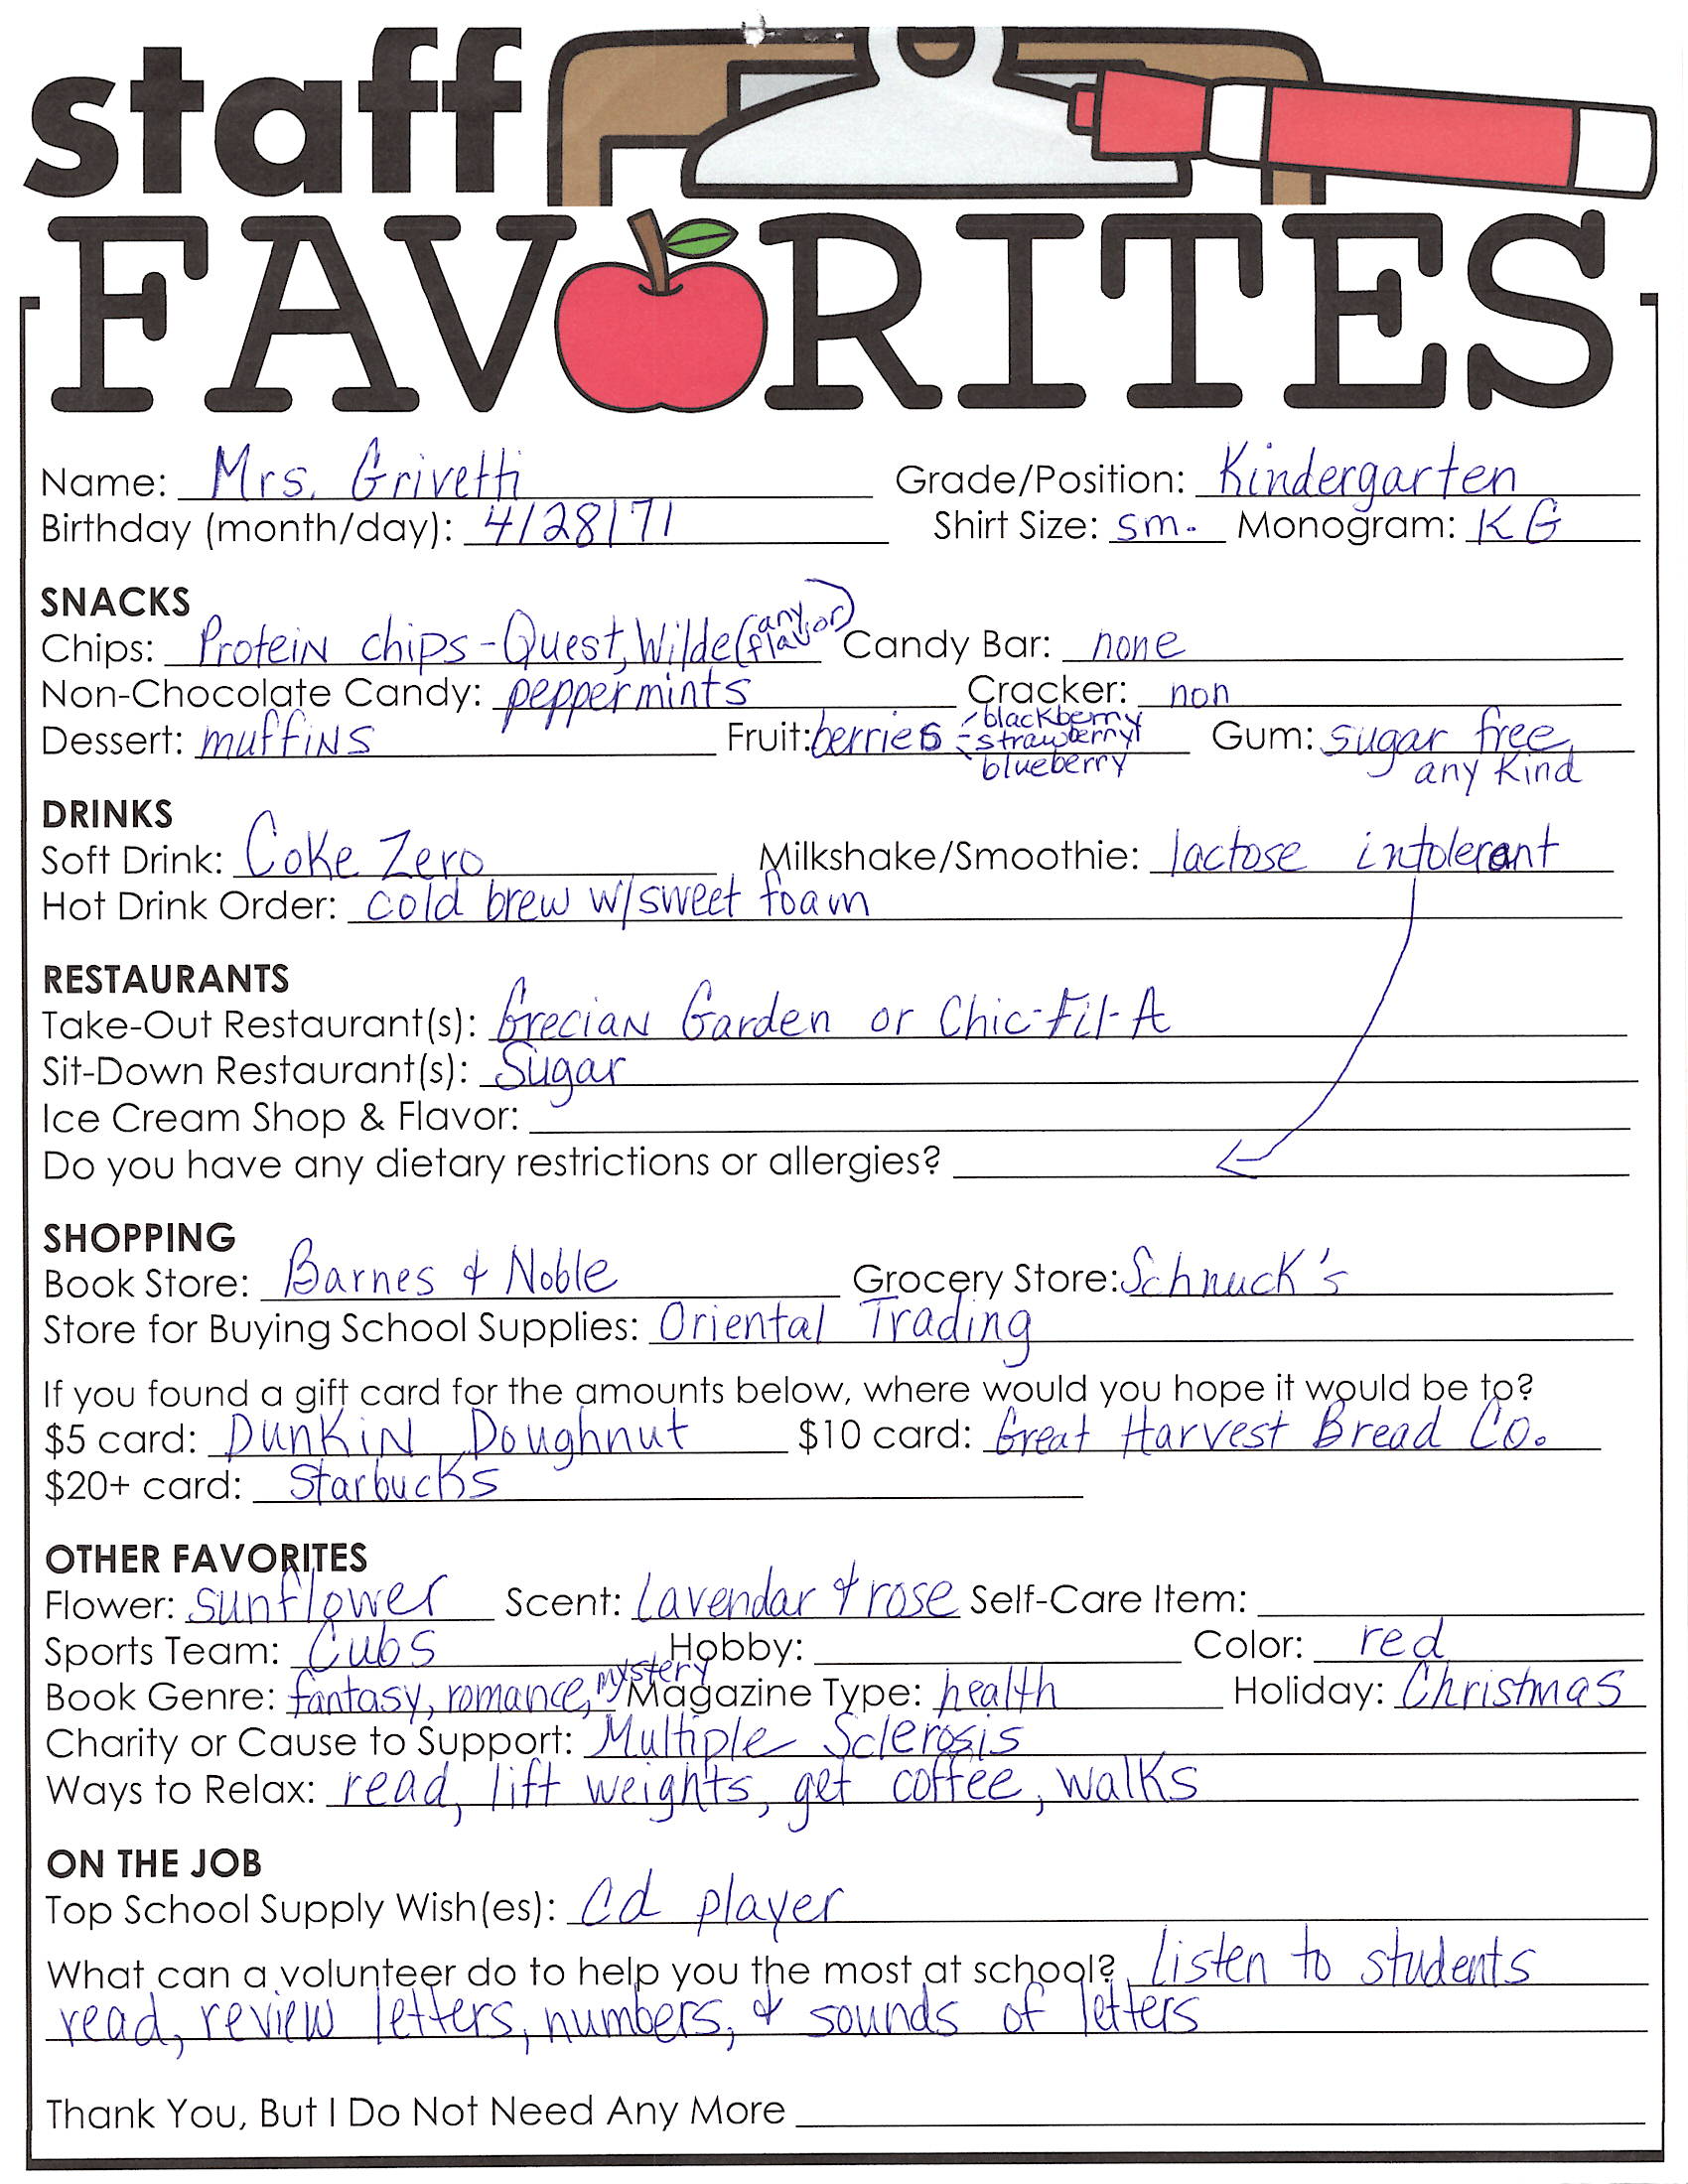 staff
FAVORITES
Name: Mrs. Grivetti Grade/Position: Kindergarten
Birthday (month/day): 4/28/71 Shirt Size: sm. Monogram: KG
SNACKS
Chips: Protein chips - Quest, Wilde (any flavor) Candy Bar: none
Non-Chocolate Candy: peppermints Cracker: non
Dessert: muffins Fruit: berries - blackberry strawberry blueberry Gum: sugar free, any kind
DRINKS
Soft Drink: Coke Zero Milkshake/Smoothie: lactose intolerant
Hot Drink Order: cold brew w/sweet foam
RESTAURANTS
Take-Out Restaurant(s): Grecian Garden or Chic-Fil-A
Sit-Down Restaurant(s): Sugar
Ice Cream Shop & Flavor:
Do you have any dietary restrictions or allergies?
SHOPPING
Book Store: Barnes & Noble Grocery Store: Schnuck's
Store for Buying School Supplies: Oriental Trading
If you found a gift card for the amounts below, where would you hope it would be to?
$5 card: Dunkin Doughnut $10 card: Great Harvest Bread Co.
$20+ card: Starbucks
OTHER FAVORITES
Flower: sunflower Scent: Lavendar & rose Self-Care Item:
Sports Team: Cubs Hobby: Color: red
Book Genre: fantasy, romance, mystery Magazine Type: health Holiday: Christmas
Charity or Cause to Support: Multiple Sclerosis
Ways to Relax: read, lift weights, get coffee, walks
ON THE JOB
Top School Supply Wish(es): Cd player
What can a volunteer do to help you the most at school? Listen to students
read, review letters, numbers, & sounds of letters
Thank You, But I Do Not Need Any More